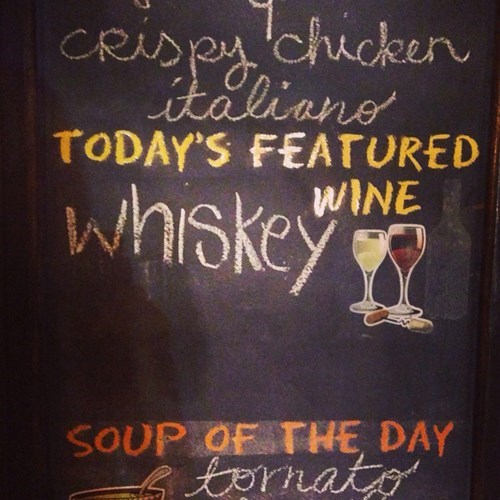 crispy chicken
italiano
TODAY'S FEATURED
WINE
whiskey
SOUP OF THE DAY
tomato